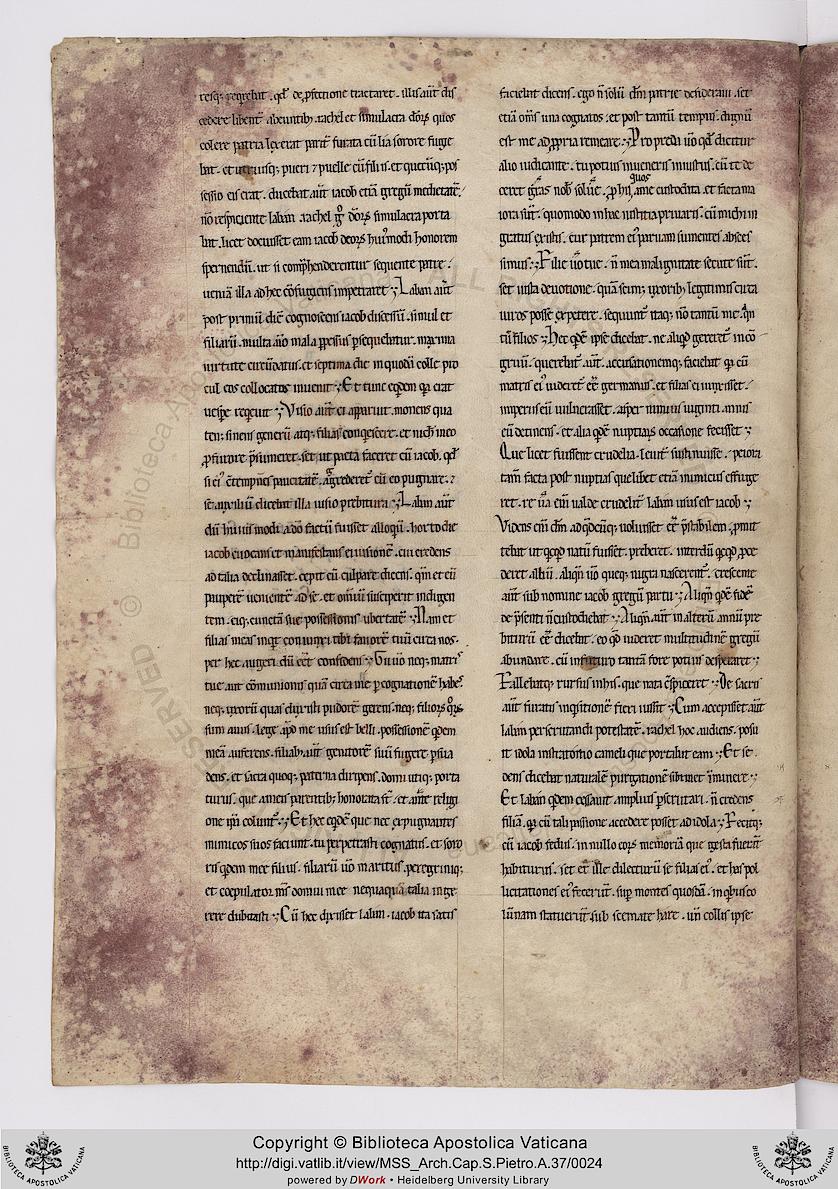 cedere libent abeuntib; rachel et simulacra deoꝝ quos
colere patria lex erat parit furata cū lia sorore fuge
bat. et utriusq; pueri ⁊ puelle cū filiis. et quecūq; pos
sessio eis erat. ducebat aūt iacob etiā gregū medietatē.
nō respiciente laban. rachel g̊ deoꝝ simulacra porta
bat. licet docuisset eam iacob deoꝝ hui᷒modi honorem
spernendū. ut si comp̄henderentur sequente patre.
ueniā illa ad hec cōfugiens impetraret. Laban aūt
post primū diē cognoscens iacob discessū. simul et
filiarū. multa uīo mala ꝑpessus ꝑsequebatur. maxima
uirtute circūdatus. et septima die in quodā colle pro
cul eos collocatos inuenit. Et tunc eqdem qa erat
uespe requieuit. Visio aūt ei apparuit. monens qua
si ei᷒ ētempnēs paucitatē. aggrederet᷑ cū eo pugnare.
se auxiliū dicebat illa uisio prebitura. Laban aūt
iacob euocans et manifestans ei uisionē. cui credens
ad talia declinasset. cepit eū culpare dicens. qm̄ et eū
pauperē uenientē ad se. et omniū susciperit indigen
tem. eiq; cuncta sue possessionis ubertatē. Nam et
filias meas inqt coniunxi tibi fauorē tuū circa nos.
per hec augeri. Tu uīo neq; matris
tue aut cōmunionis quā circa me ꝑ cognationē habes.
neq; uxorū quas duxisti pudorē gerens. neq; filioꝝ quoꝝ
sum auus. lege apd me usus est belli. possessionē qdem
meā auferens. filiab; aūt genitorē suū fugere ꝑsua
dens. et sacra quoq; paterna diripiens. domi utiq; porta
turus. que a meis parentib; honorata st.
one ipā colunt᷑. Et hec eqdē que nec expugnantes
inimicos suos faciunt. tu perpetrasti cognatus. et soro
ris qdem mee filius. filiarū uīo maritus. peregrinus;
et coepulator mis domui mee nequaquā talia inge
rere dubitasti. Cū hec dixisset laban. iacob ita satis
faciebat dicens. ego n̄ solū dm̄ patrie desideraui. set
etiā om̄s una cognatos. et post tantū tempus. dignū
est me ad ꝓpria remeare. Pro preda uīo qdē dicitur
alio iudicante. tu potius inueneris iniustus. cū te de
ceret gr̄as nob̄ soluē. quos
iora sūt. quomodo in hac iustitia priuaris. cū michi in
gratus existis. cur patrem ei᷒ paruam sumentes absces
simus. Filie uīo tue. n̄ mea malignitate secute sūt.
set iusta deuotione. quā scim; uxorib; legitimis circa
uiros posse expetere. sequunt᷑ itaq; nō tantū me. qn̄
tū filios. Hec qdē ipse dicebat. ne aliqd gereret incō
gruū. querebat᷑ aūt. accusationemq; faciebat qa cū
matris ei᷒ uideret eē germanus. et filias ei iunxisset.
imperiis eū uulnerasset. asper nimiis uiginti annis
eū detinens. et alia qdē nuptiarū occasione fecisset.
Que licet fuissent crudelia. peiora
tam̄ facta post nuptias que libet etiā inimicus effuge
ret. re uā eim ualde crudelit᷑ laban usus est iacob.
Videns eim dm̄ ad qdcūq; uoluisset eē p̄stabilem. ꝓmit
tebat ut qcqd natū fuisset. preberet. interdū qcqd ꝓce
deret albū. aliqn uīo queq; nigra nascerent᷑. crescente
aūt sub nomine iacob gregū partu. Aliqn qdē fidē
de p̄senti n̄ custodiebat. Aliqn aūt in alterū annū pre
biturū eē dicebat. eo qd uideret multitudinē gregū
abundare. cū in futuro tantā fore potius desperaret.
Fallebatq; rursus in his. que nata c̄spiceret. De sacris
aūt furatis inqsitionē fieri iussit. Cum accepisset aūt
laban perscrutandi potestatē. rachel hoc audiens. posu
it idola in stratorio cameli que portabat eam. Et se
dens dicebat naturalē purgationē sibimet īminere.
Et laban qdem cessauit amplius ꝑscrutari. n̄ credens
filiā. qa cū tali passione accedere posset ad idola. Fecitq;
cū iacob fedus. in nullo eoꝝ memoriā que gesta fuerāt
habiturus. set et ille dilecturū se filias ei᷒. et has pol
licitationes ei᷒ fecerūt. suꝑ montes quosdā. in qbus co
lūnam statuerūt sub scemate hare. un̄ collis ipse
Copyright © Biblioteca Apostolica Vaticana
http://digi.vatlib.it/view/MSS_Arch.Cap.S.Pietro.A.37/0024
powered by DWork • Heidelberg University Library